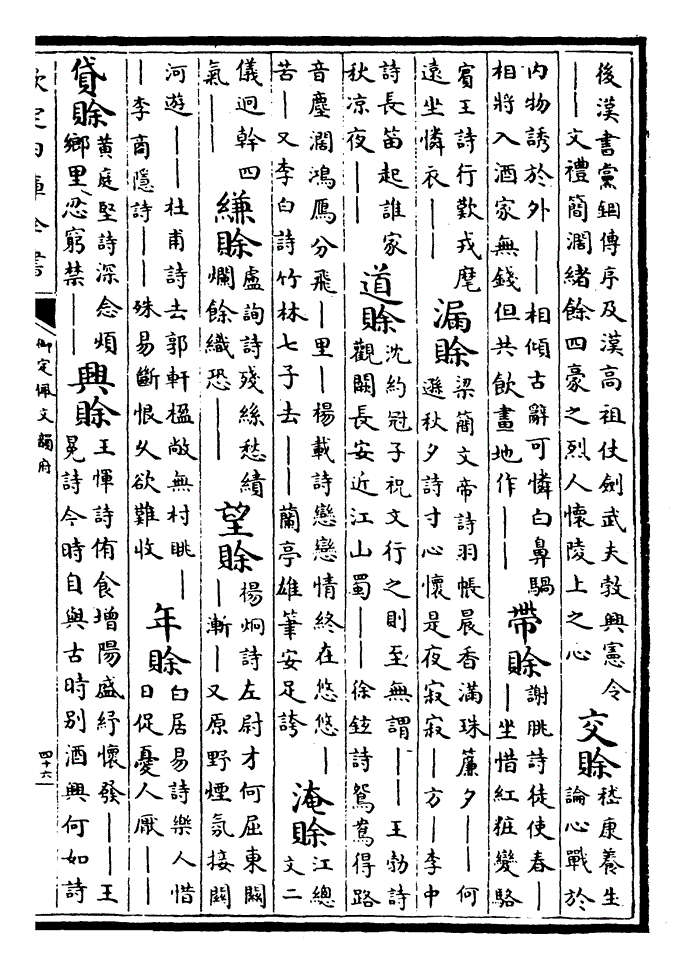 後漢書黨錮傳序及漢高祖仗劍武夫㪍興憲令
——文禮簡濶緒餘四豪之烈人懷陵上之心
交賖
嵇康養生
論心戰於
內物誘於外——相傾古辭可憐白鼻騧
相將入酒家無錢但共飲畫地作——
帶賖
謝朓詩徒使春—
—坐惜紅粧變駱
賓王詩行歎戎麾
遠坐憐衣——
漏賖
梁簡文帝詩羽帳晨香滿珠簾夕——何
遜秋夕詩寸心懷是夜寂寂——方—李中
詩長笛起誰家
秋凉夜——
道賖
沈約冠子祝文行之則至無謂——王勃詩
觀闕長安近江山蜀——徐鉉詩鴛鴦得路
音塵濶鴻鴈分飛—里—楊載詩戀戀情終在悠悠—
苦—又李白詩竹林七子去——蘭亭雄筆安足誇
淹賖
江總
文二
儀迥幹四
氣——
縑賖
盧詢詩殘絲愁績
爛餘織恐——
望賖
楊炯詩左尉才何屈東關
—漸—又原野煙氛接關
河遊——杜甫詩去郭軒楹敞無村眺—
—李商隱詩——殊易斷恨乆欲難收
年賖
白居易詩樂人惜
日促憂人厭——
貸賖
黄庭堅詩深念煩
鄉里忍窮禁——
興賖
王惲詩侑食增陽盛紓懷發——王
冕詩今時自與古時別酒興何如詩
欽定四庫全書
御定佩文韻府
四十六